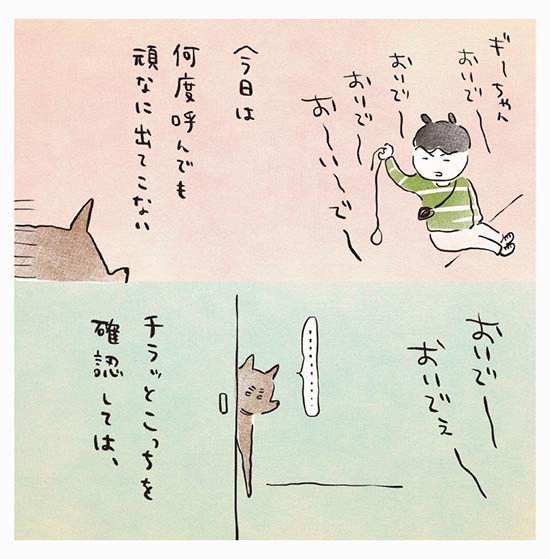 ギーちゃん
おいでー
おいでー
おいでー
おーいーでー
今日は
何度呼んでも
頑なに出てこない
おいでー
おいでぇー
………
チラッとこっちを
確認しては、